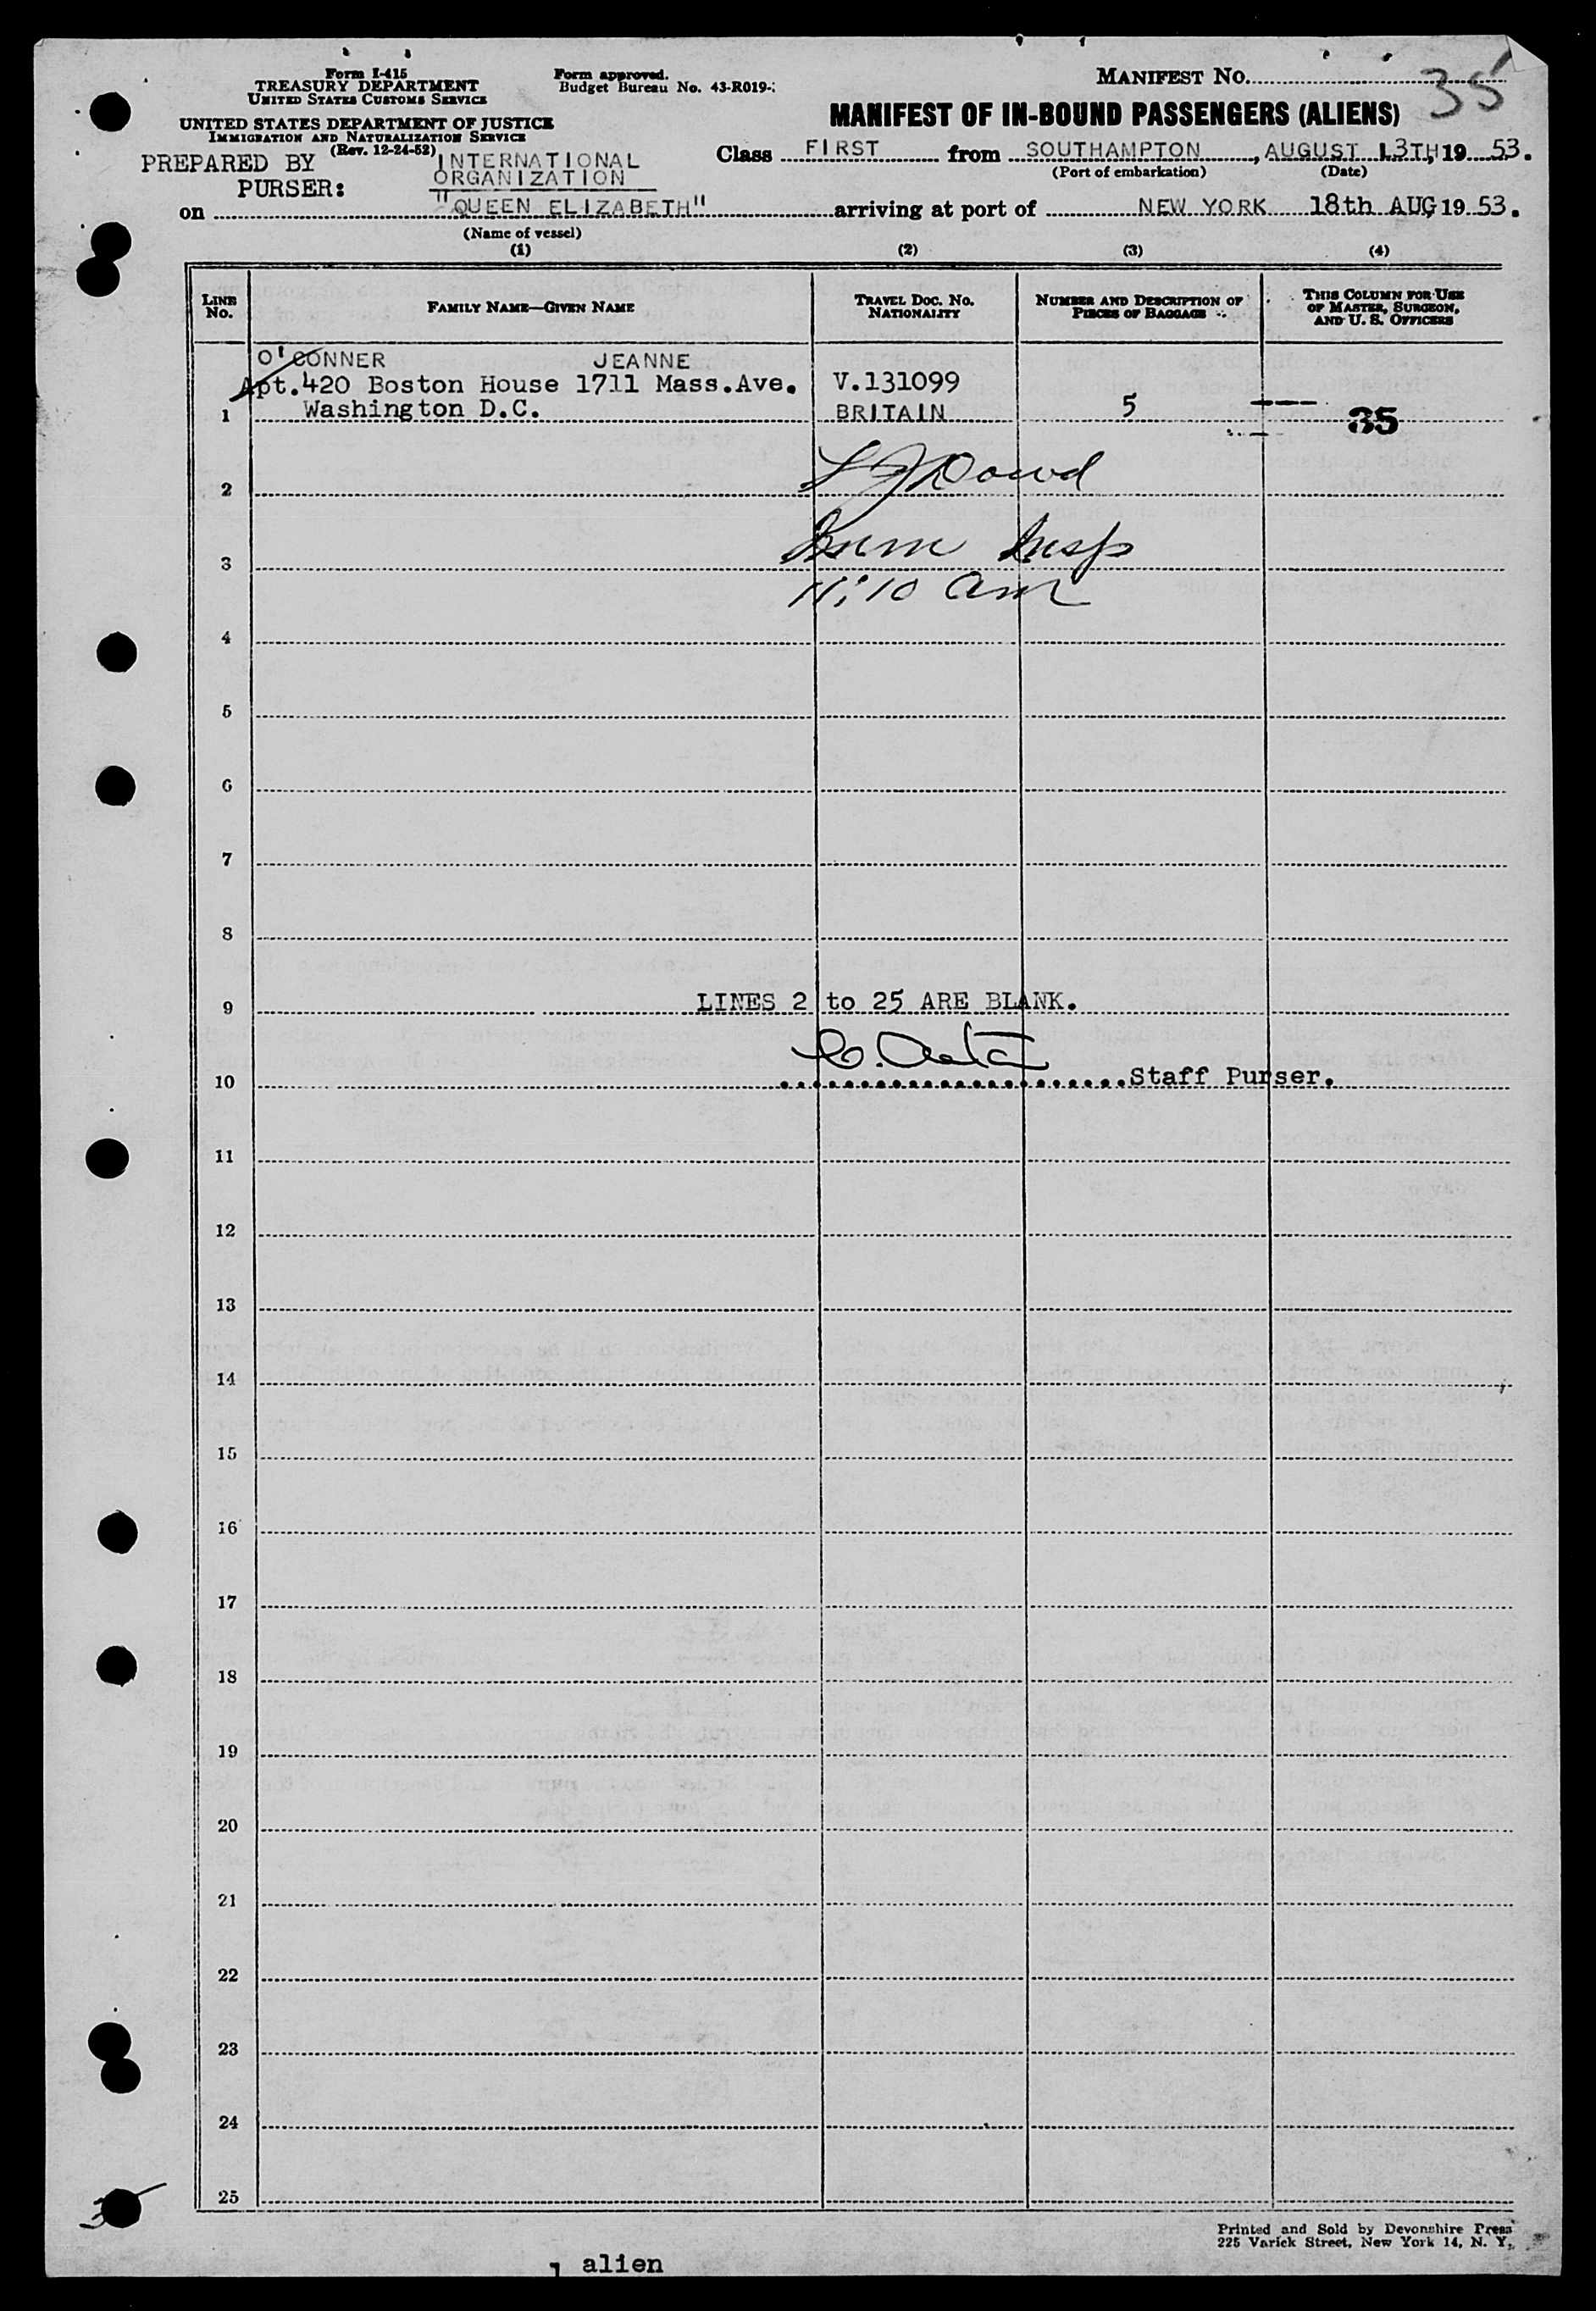 Form I-415
TREASURY DEPARTMENT
UNITED STATES CUSTOMS SERVICE
UNITED STATES DEPARTMENT OF JUSTICE
IMMIGRATION AND NATURALIZATION SERVICE
(Rev. 12-24-52)
Form approved.
Budget Bureau No. 43-R019-
MANIFEST NO. 35
MANIFEST OF IN-BOUND PASSENGERS (ALIENS)
PREPARED BY PURSER:
INTERNATIONAL
ORGANIZATION
Class FIRST from SOUTHAMPTON, AUGUST 13TH, 19 53.
(Port of embarkation) (Date)
on "QUEEN ELIZABETH" arriving at port of NEW YORK 18th AUG, 19 53.
(Name of vessel)
(1) (2) (3) (4)
LINE NO.
FAMILY NAME—GIVEN NAME
TRAVEL DOC. NO. NATIONALITY
NUMBER AND DESCRIPTION OF PIECES OF BAGGAGE
THIS COLUMN FOR USE OF MASTER, SURGEON, AND U. S. OFFICERS
O'CONNER JEANNE
Apt.420 Boston House 1711 Mass.Ave. V.131099
1 Washington D.C. BRITAIN 5 35
Dowd
2
Imm Insp
3
11:10 am
4
5
6
7
8
9 LINES 2 to 25 ARE BLANK.
10 Staff Purser.
11
12
13
14
15
16
17
18
19
20
21
22
23
24
25
35
Printed and Sold by Devonshire Press
225 Varick Street, New York 14, N. Y.
1 alien